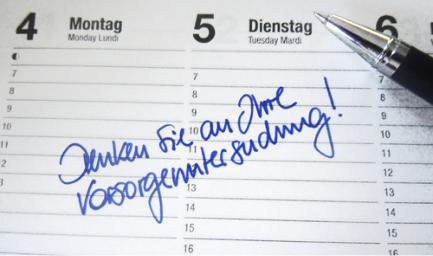 4 Montag 5 Dienstag 6
Monday Lundi Tuesday Mardi
7 7 7
8 8 8
9 9 9
10 10 10
11 11 11
2 12
3 13 13
14 14
15 15
16 16
Denken Sie an Ihre
Vorsorgeuntersuchung!